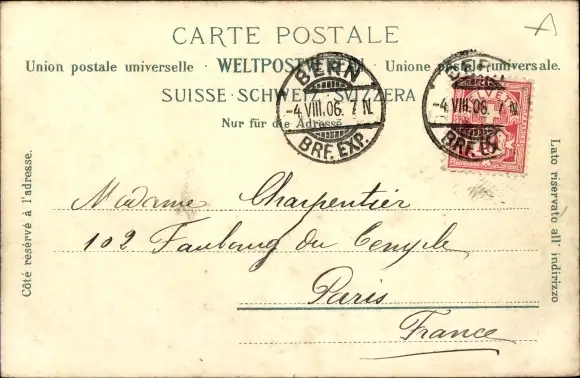 CARTE POSTALE
Union postale universelle · WELTPOSTVEREIN · Unione postale universale.
SUISSE · SCHWEIZ · SVIZZERA
Nur für die Adresse
BERN
-4.VIII.06. 7 N.
BRF. EXP.
BERN
-4.VIII.06. 7 N.
BRF. EX
HELVETIA
Côté reservé à l'adresse.
Lato riservato all' indirizzo
Madame Charpentier
102 Faubourg du Temple
Paris
France
A